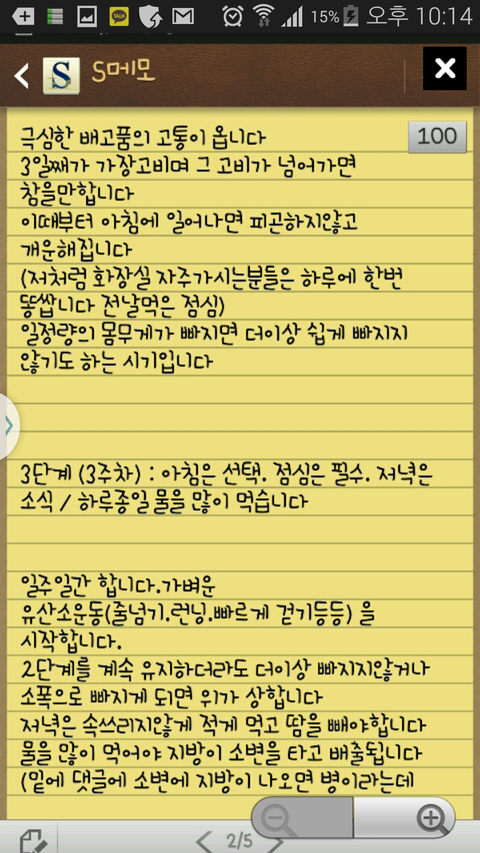 TALK
15% 오후 10:14
S S메모
100
극심한 배고품의 고통이 옵니다
3일째가 가장고비며 그 고비가 넘어가면
참을만합니다
이때부터 아침에 일어나면 피곤하지않고
개운해집니다
(저처럼 화장실 자주가시는분들은 하루에 한번
똥쌉니다 전날먹은 점심)
일정량의 몸무게가 빠지면 더이상 쉽게 빠지지
않기도 하는 시기입니다
3단계 (3주차) : 아침은 선택. 점심은 필수. 저녁은
소식 / 하루종일 물을 많이 먹습니다
일주일간 합니다.가벼운
유산소운동(줄넘기.런닝.빠르게 걷기등등) 을
시작합니다.
2단계를 계속 유지하더라도 더이상 빠지지않거나
소폭으로 빠지게 되면 위가 상합니다
저녁은 속쓰리지않게 적게 먹고 땀을 빼야합니다
물을 많이 먹어야 지방이 소변을 타고 배출됩니다
(밑에 댓글에 소변에 지방이 나오면 병이라는데
2/5